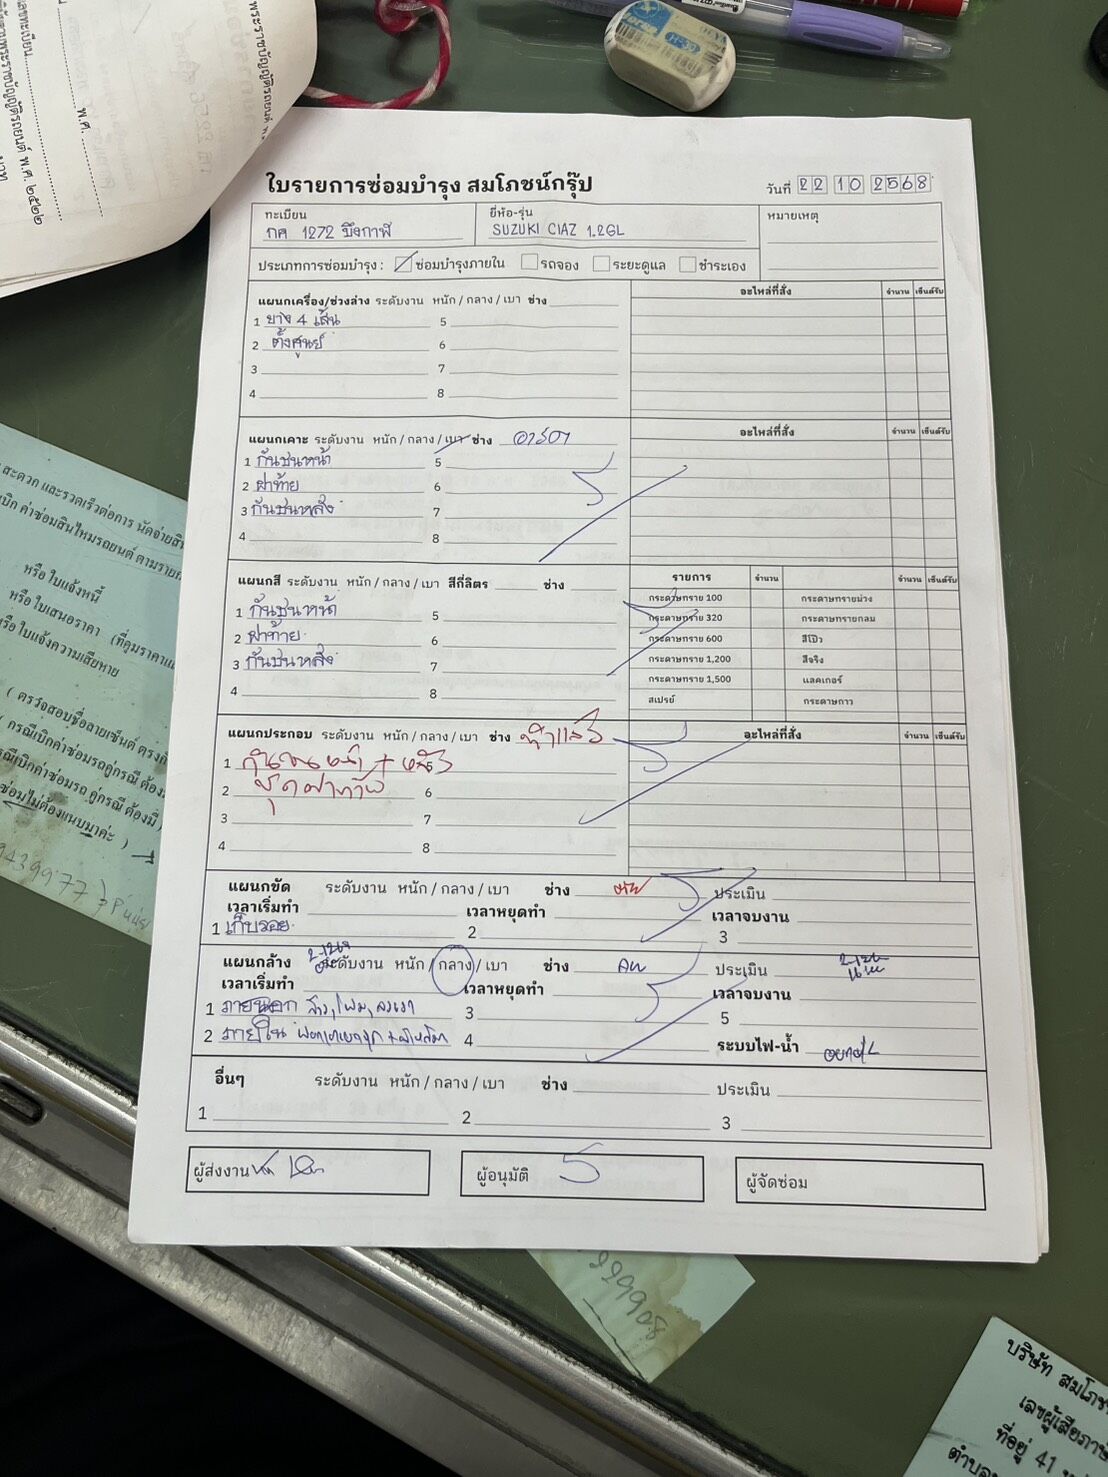 ใบรายการซ่อมบำรุง สมโภชน์กรุ๊ป
วันที่ 22 10 2568
ทะเบียน
กศ 1272 บึงกาฬ
ยี่ห้อ-รุ่น
SUZUKI CIAZ 1.2GL
หมายเหตุ
ประเภทการซ่อมบำรุง : ซ่อมบำรุงภายใน รถจอง ระยะดูแล ชำระเอง
แผนกเครื่อง/ช่วงล่าง ระดับงาน หนัก / กลาง / เบา ช่าง
อะไหล่ที่สั่ง จำนวน เซ็นต์รับ
1 ยาง 4 เส้น 5
2 ตั้งศูนย์ 6
3 7
4 8
แผนกเคาะ ระดับงาน หนัก / กลาง / เบา ช่าง
อะไหล่ที่สั่ง จำนวน เซ็นต์รับ
1 กันชนหน้า 5
2 ฝาท้าย 6
3 กันชนหลัง 7
4 8
แผนกสี ระดับงาน หนัก / กลาง / เบา สีกี่ลิตร ช่าง
รายการ จำนวน จำนวน เซ็นต์รับ
1 กันชนหน้า 5
2 ฝาท้าย 6
3 กันชนหลัง 7
4 8
กระดาษทราย 100 กระดาษทรายม่วง
กระดาษทราย 320 กระดาษทรายกลม
กระดาษทราย 600 สีโป๊ว
กระดาษทราย 1,200 สีจริง
กระดาษทราย 1,500 แลคเกอร์
สเปรย์ กระดาษกาว
แผนกประกอบ ระดับงาน หนัก / กลาง / เบา ช่าง
อะไหล่ที่สั่ง จำนวน เซ็นต์รับ
1 กันชนหน้า + หลัง
2 ชุดฝาท้าย 6
3 7
4 8
แผนกขัด ระดับงาน หนัก / กลาง / เบา ช่าง ประเมิน
เวลาเริ่มทำ เวลาหยุดทำ เวลาจบงาน
1 เก็บรอย 2 3
แผนกล้าง ระดับงาน หนัก / กลาง / เบา ช่าง ประเมิน
เวลาเริ่มทำ เวลาหยุดทำ เวลาจบงาน
1 ภายนอก 3 5
2 ภายใน 4
ระบบไฟ-น้ำ
อื่นๆ ระดับงาน หนัก / กลาง / เบา ช่าง ประเมิน
1 2 3
ผู้ส่งงาน
ผู้อนุมัติ
ผู้จัดซ่อม
หรือ ใบแจ้งหนี้
หรือ ใบเสนอราคา
หรือ ใบแจ้งความเสียหาย
บริษัท สมโภช
เลขผู้เสียภาษ
ที่อยู่ 41
ตำบล